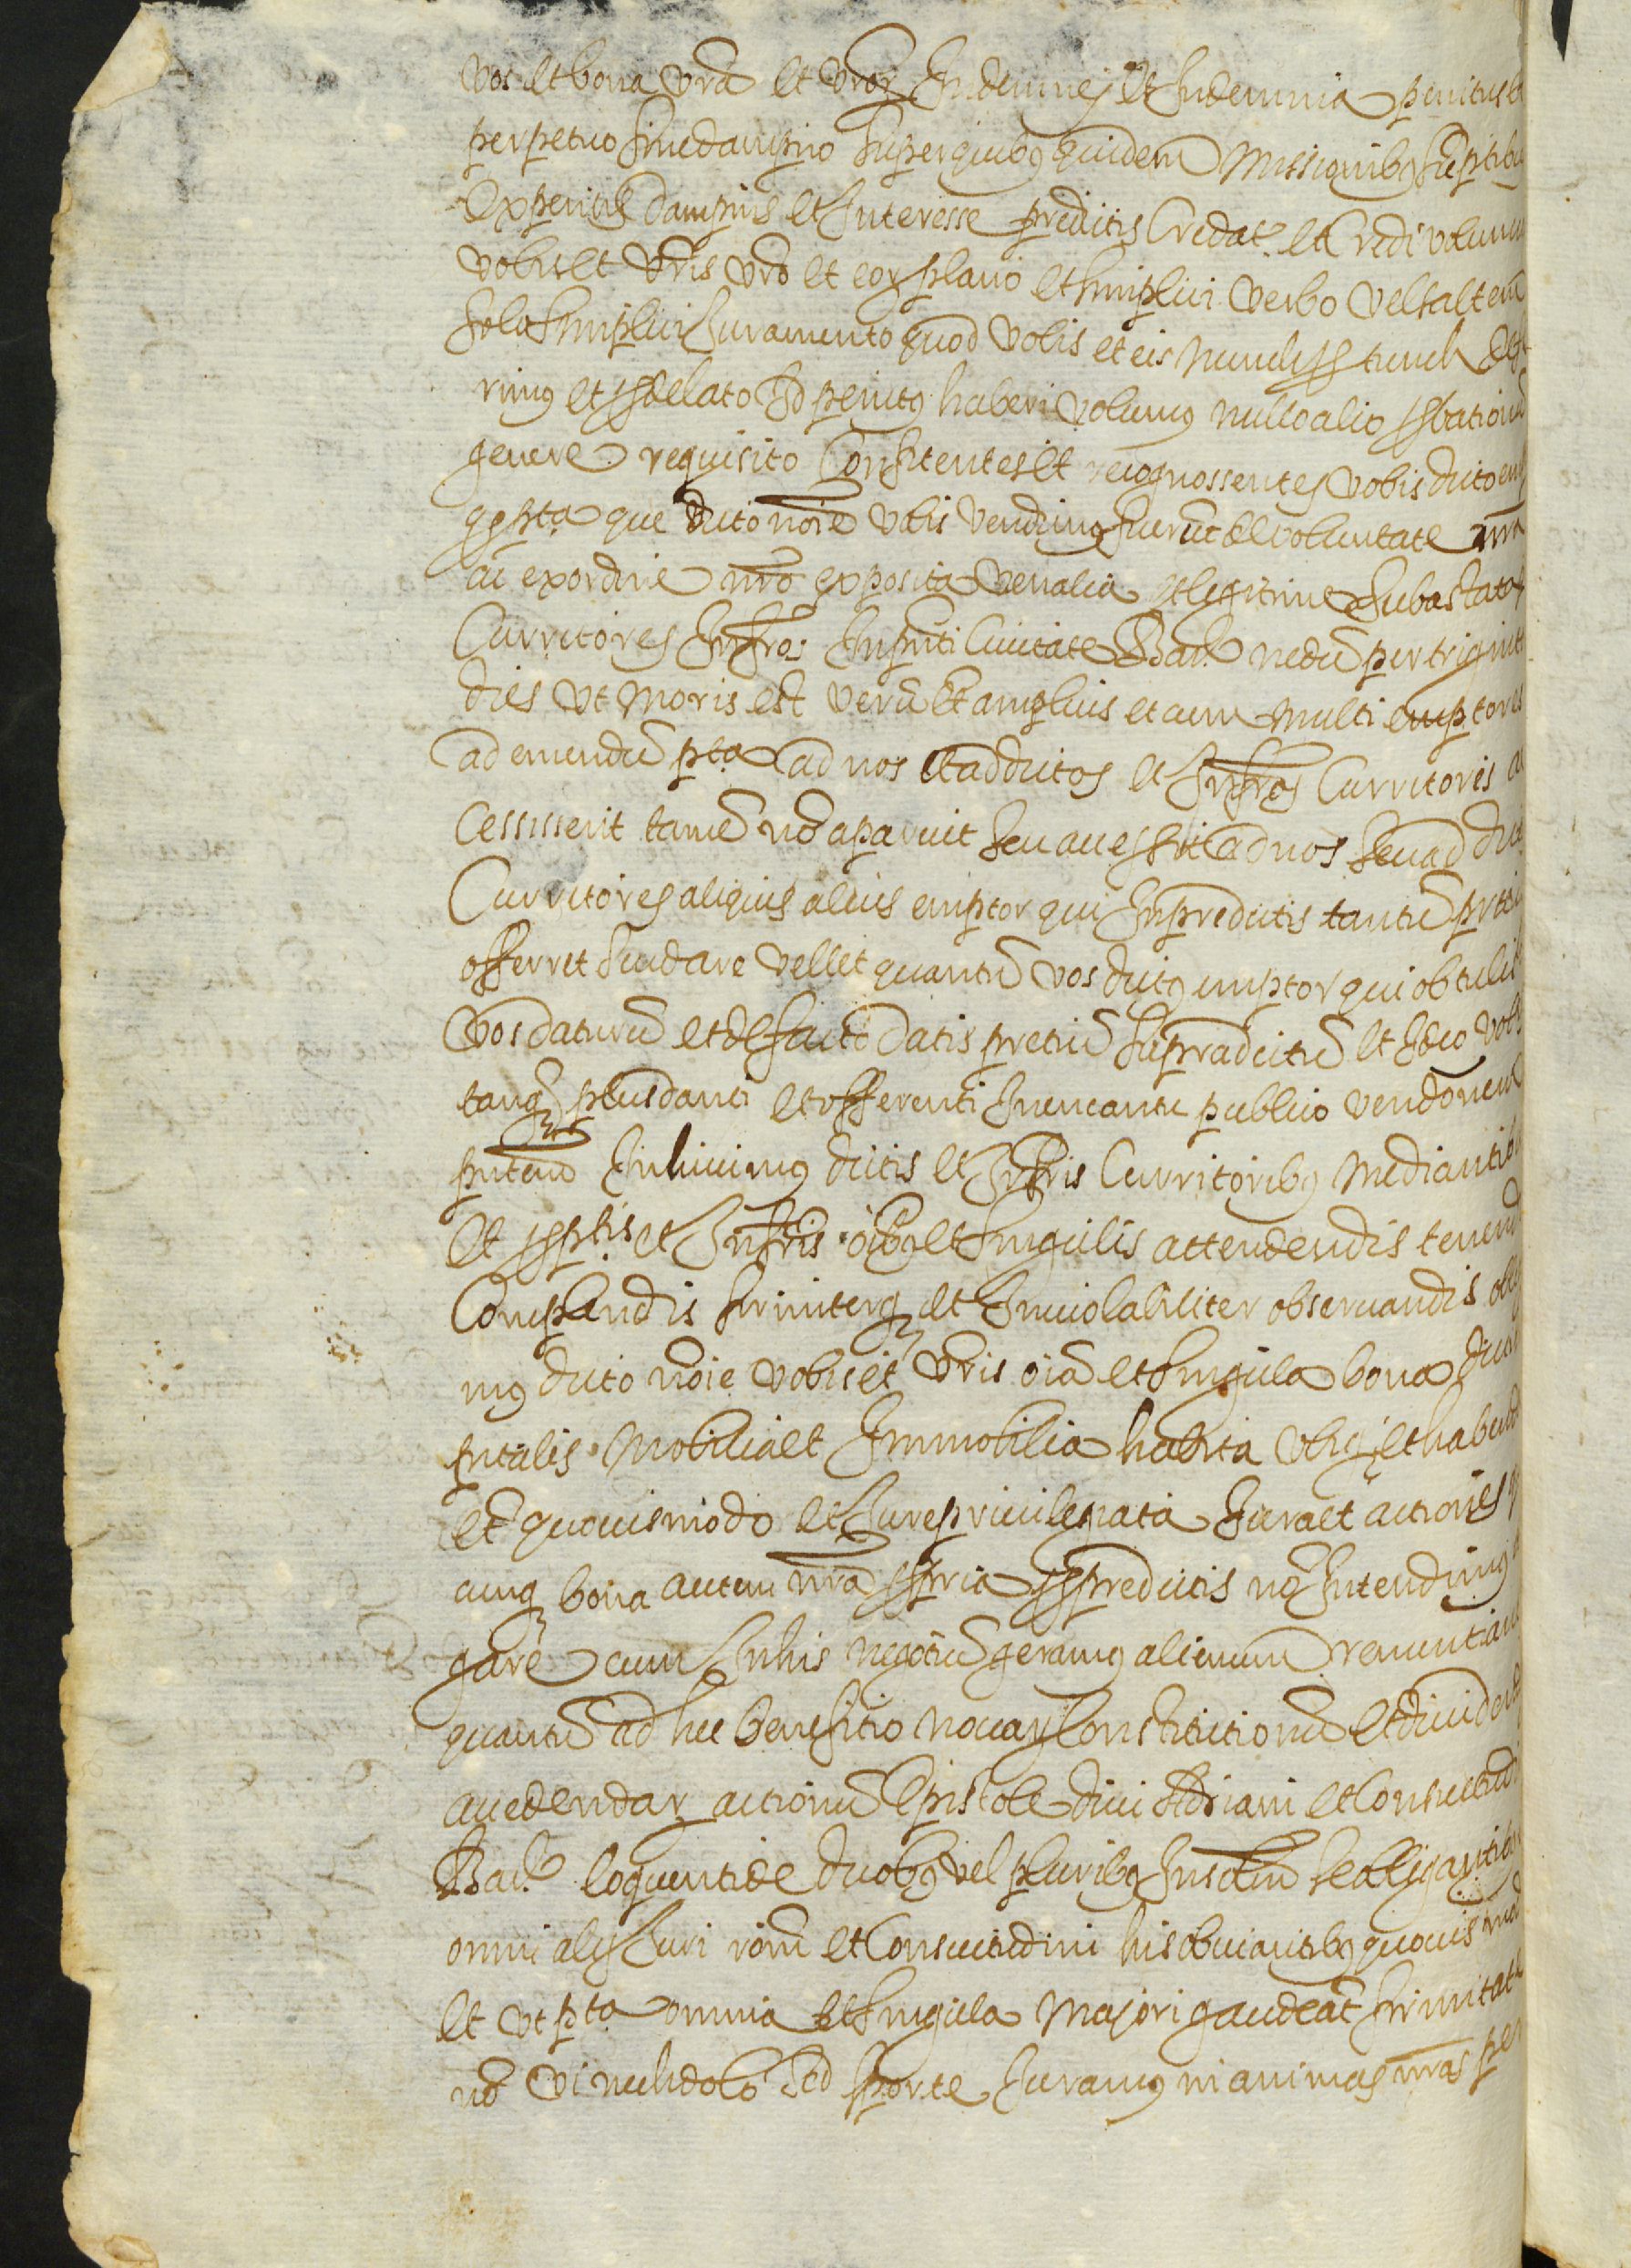 vos et bona vrã et vror Indemnes et Indemnia penitus et
perpetuo sine dampno super quibus quidem missionibus sumptibus
expensis dampnis et Interesse predictis Credat.r et Credi volumus
vobis et vris vro et eor plano et simplici verbo vel saltem
solo simplici Juramento quod vobis et eis nunch pro tunch
rimus et pro delato Id penitus haberi volumus nullo alio probationum
genere requisito Confitentes et recognossentes vobis dicto
que dicto noie vobis vendimus fuerut de voluntate nra
ac ex ordine nro exposita venalia et legitime subastata
Curritores Infros In pnti Civitate Barne nedu per triginta
dies vt moris est veru et amplius et cum multi emptores
ad emendu pta ad nos et ad dictos et Infros Curritoris ac
cesserit tame no aparuit seu accessit ad nos seu ad dic
Curritores aliquis alius emptor qui In predictis tantu preti
offerret seu dare vellet quantu vos dictus emptor qui obtulis
vos daturu et de facto datis pretiu supradictu et Ideo vobis
tanq plus danti et offerenti In encantu publico vendonem
pntem Inhivimus dictis et Infris Curritoribus mediantib
et pro ptis et Infris oibus et singulis attendendis tenend
Complendis firmiterq et Inviolabiliter observandis obli
mus dicto noie vobis et vris oia et singula bona dict
pitalis mobilia et Immobilia habita vbiq et habend
et quovismodo et Jure privilegiata Jura et actiones
cunq bona autem nra propria pro predictis no Intendimus
gare cum In his negotiu geramus alienum renuntian
quantu ad hec benefitio novar Constitutionu et dividend
accedendar actionu Epistole divi Adriani et Consuetud
Barne loquenti de duobus vel pluribus In solidu se obligantib
omni alij Juri roni et Consuetudini his obviantibus quovis mod
et vt pta omnia et singula majori gaudeat firmitate
no vi nech dolo sed sponte Juramus in animas nras per